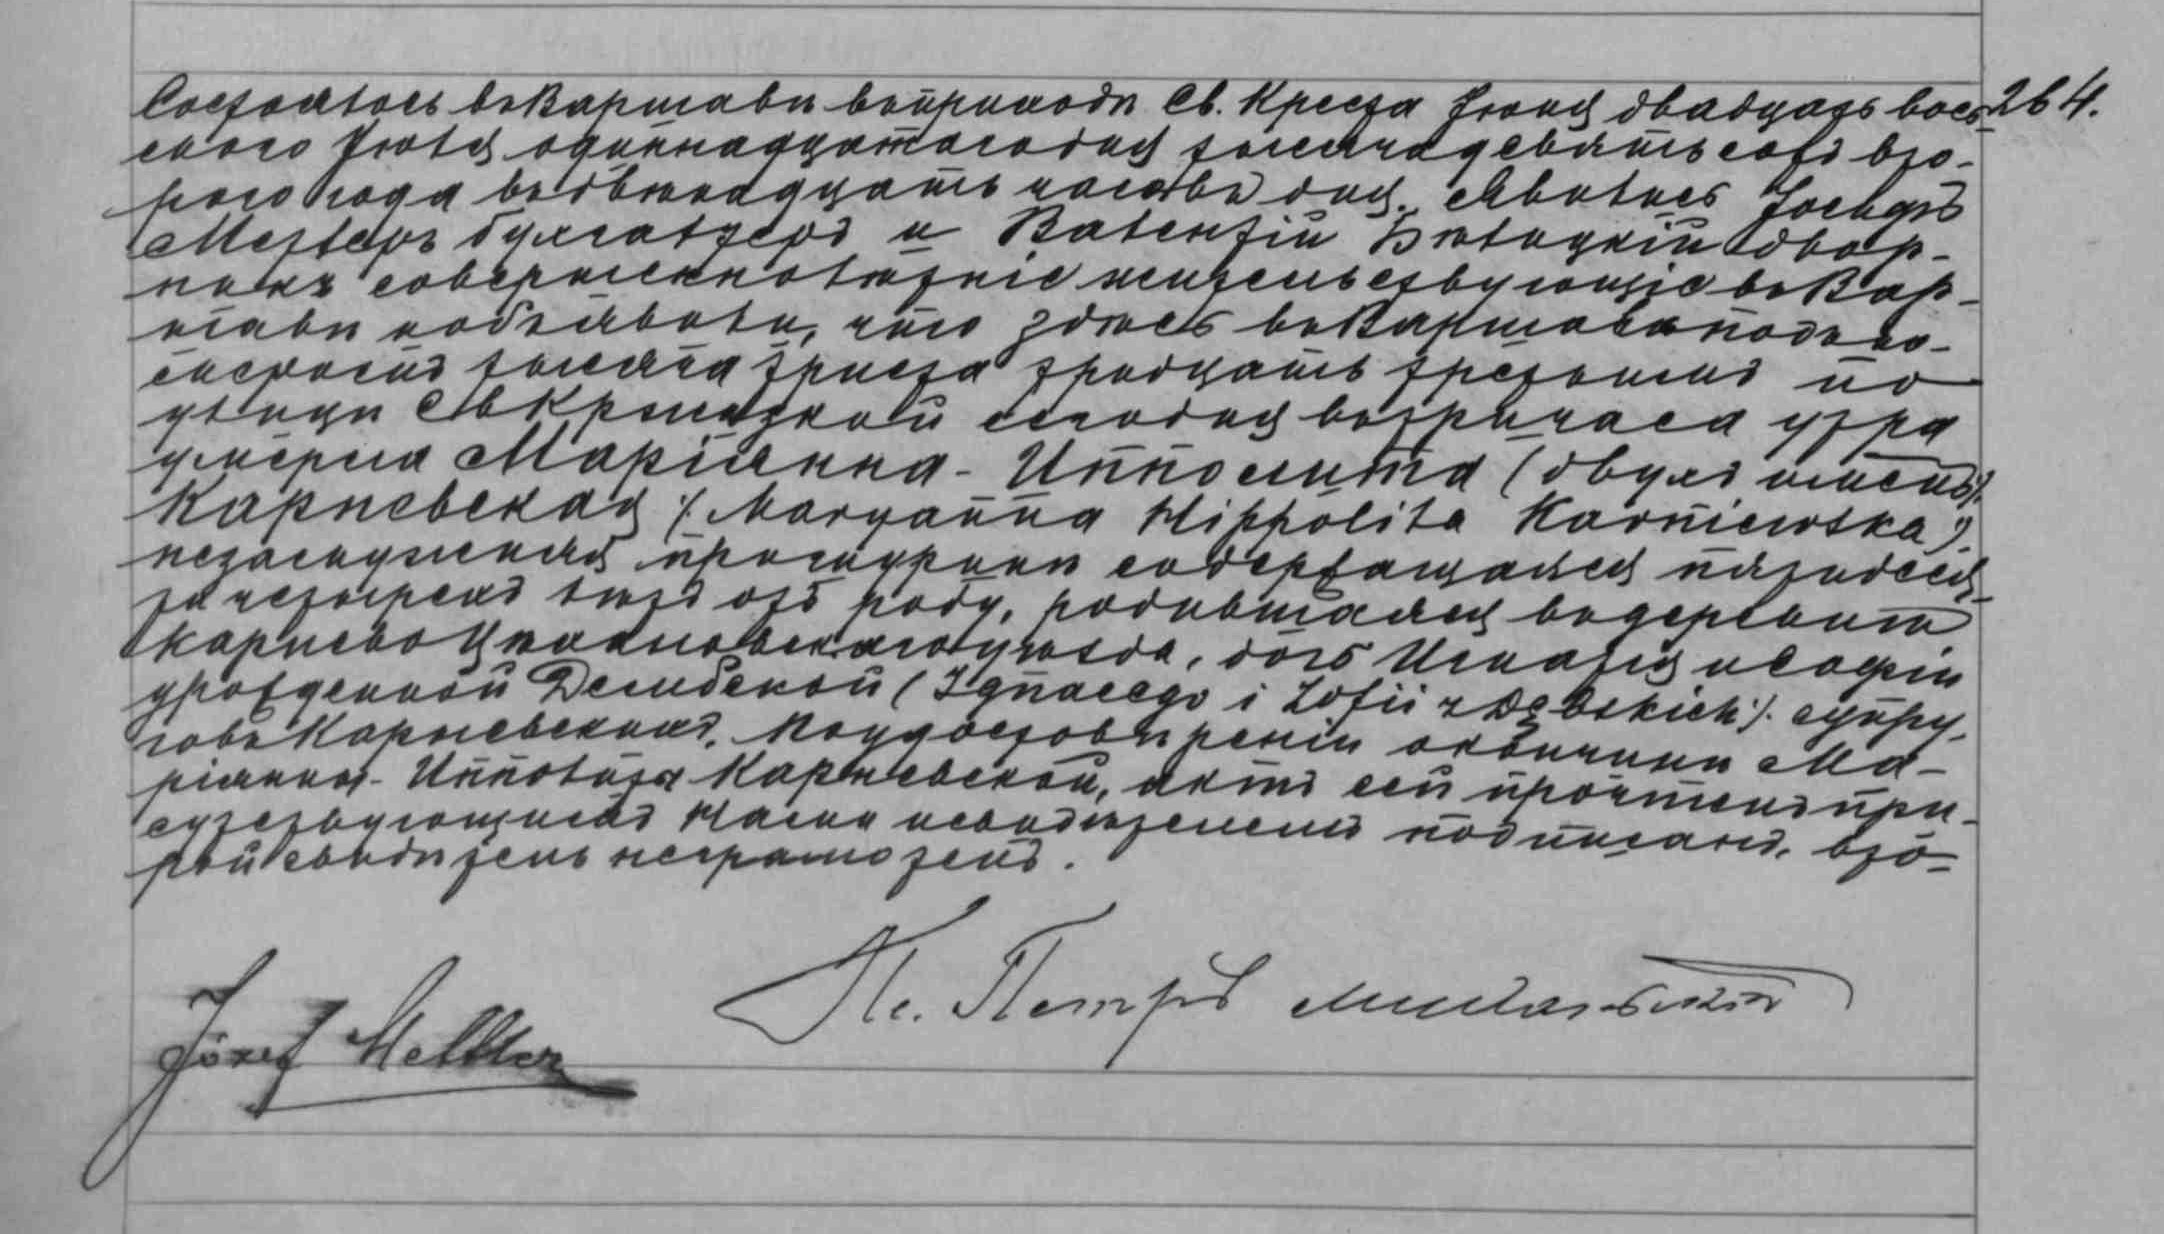 Состоялось въ Варшавѣ въ приходѣ Св. Креста Іюня двадцать вось- 264.
смого Іюля одиннадцатаго дня тысяча девятьсотъ вто-
рого года въ двѣнадцать часовъ дня. Явились Іосифъ
Меллеръ бухгалтеръ и Валентій Бѣлицкій двор-
никъ совершеннолѣтніе жительствующіе въ Вар-
шавѣ и объявили, что здѣсь въ Варшавѣ подъ но-
меромъ тысяча триста тридцать третьимъ по
улицѣ Св Крыжской сегодня въ три часа утра
умерла Маріянна-Ипполита (двухъ именъ)
Карневская /Maryanna Hippolita Karniewska/.
незамужняя при содержащаяся пятидеся-
ти четырехъ лѣтъ отъ роду, родившаяся въ деревнѣ
Карнево Цѣхановскаго уѣзда, дочь Игнатія и Софіи
урожденной Дембской (Ignacego i Zofii z Dębskich). супру-
говъ Карневскихъ. По удостовѣреніи о кончинѣ Ма-
ріянны-Ипполиты Карневской, актъ сей прочтенъ при-
сутствующимъ Нами и свидѣтелемъ подписанъ, вто-
рой свидѣтель неграмотенъ.
Кс. Петръ
Józef Meller